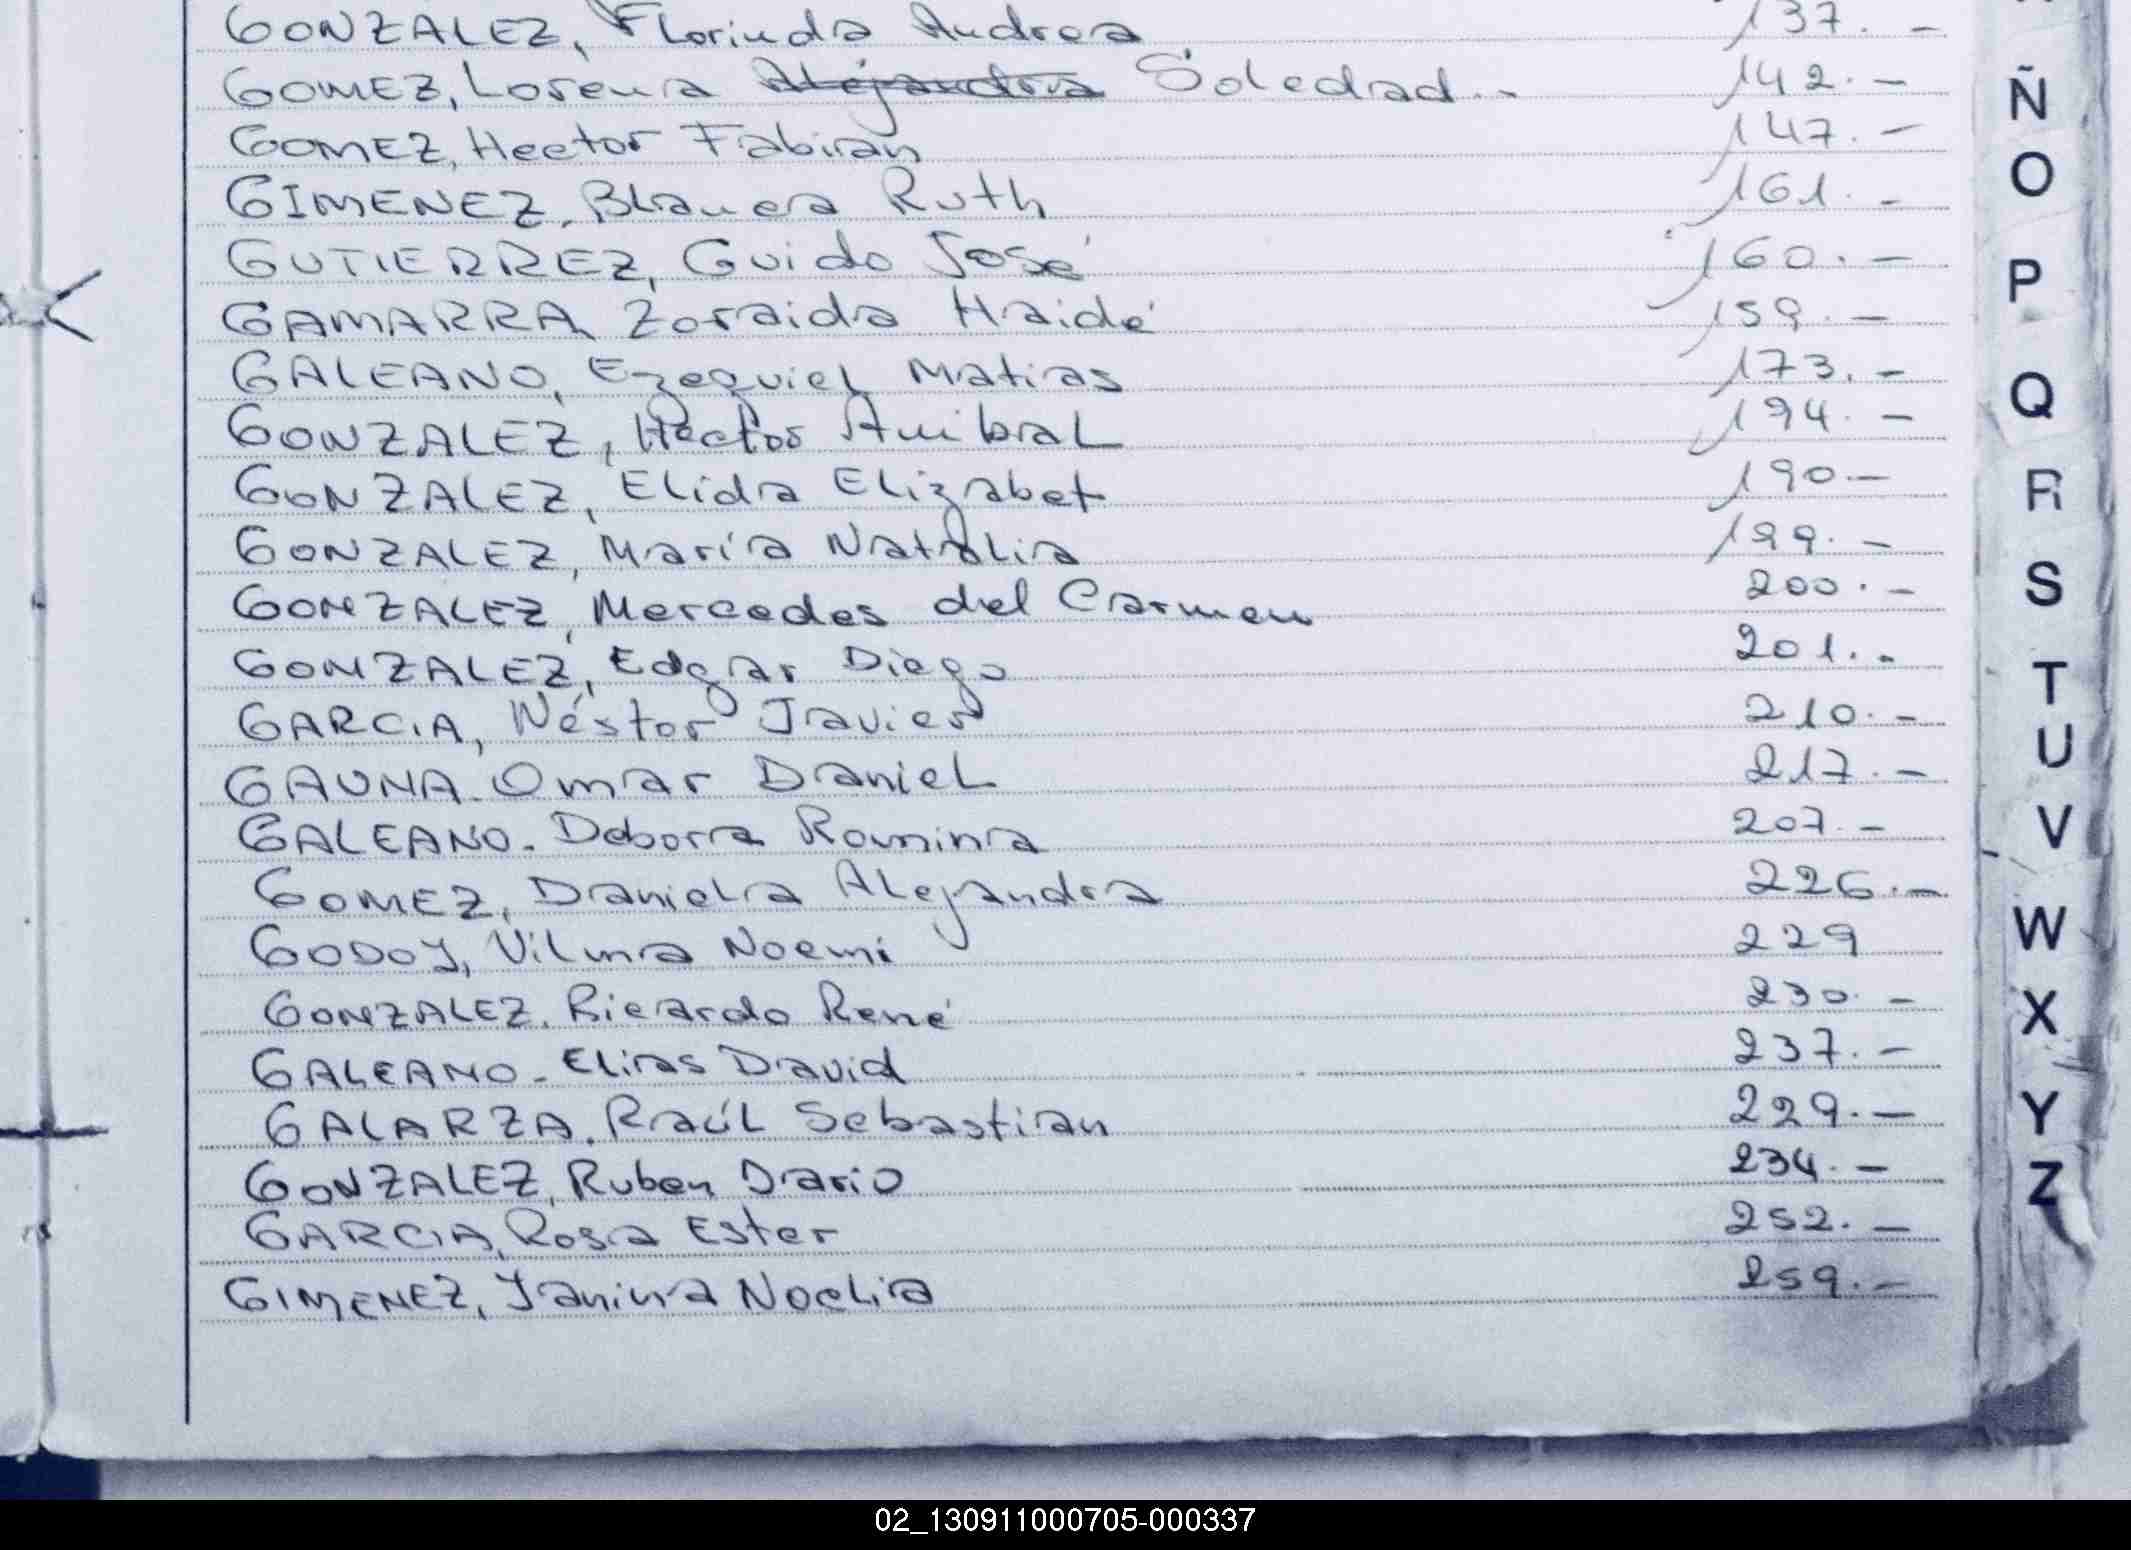 GONZALEZ, Florinda Andrea 137.-
GOMEZ, Lorena Alejandra Soledad.- 142.-
GOMEZ, Hector Fabian 147.-
GIMENEZ, Blanca Ruth 161.-
GUTIERREZ, Guido José 160.-
GAMARRA, Zoraida Haidé 159.-
GALEANO, Ezequiel Matias 173.-
GONZALEZ, Hector Anibal 194.-
GONZALEZ, Elida Elizabet 190.-
GONZALEZ, María Natalia 199.-
GONZALEZ, Mercedes del Carmen 200.-
GONZALEZ, Edgar Diego 201.-
GARCIA, Néstor Javier 210.-
GAUNA. Omar Daniel 217.-
GALEANO. Debora Romina 207.-
GOMEZ, Daniela Alejandra 226.-
GODOY, Vilma Noemi 229
GONZALEZ. Ricardo René 230.-
GALEANO - Elias David 237.-
GALARZA. Raúl Sebastian 229.-
GONZALEZ, Ruben Dario 234.-
GARCIA, Rosa Ester 252.-
GIMENEZ, Yanina Noelia 259.-
Ñ
O
P
Q
R
S
T
U
V
W
X
Y
Z
02_130911000705-000337